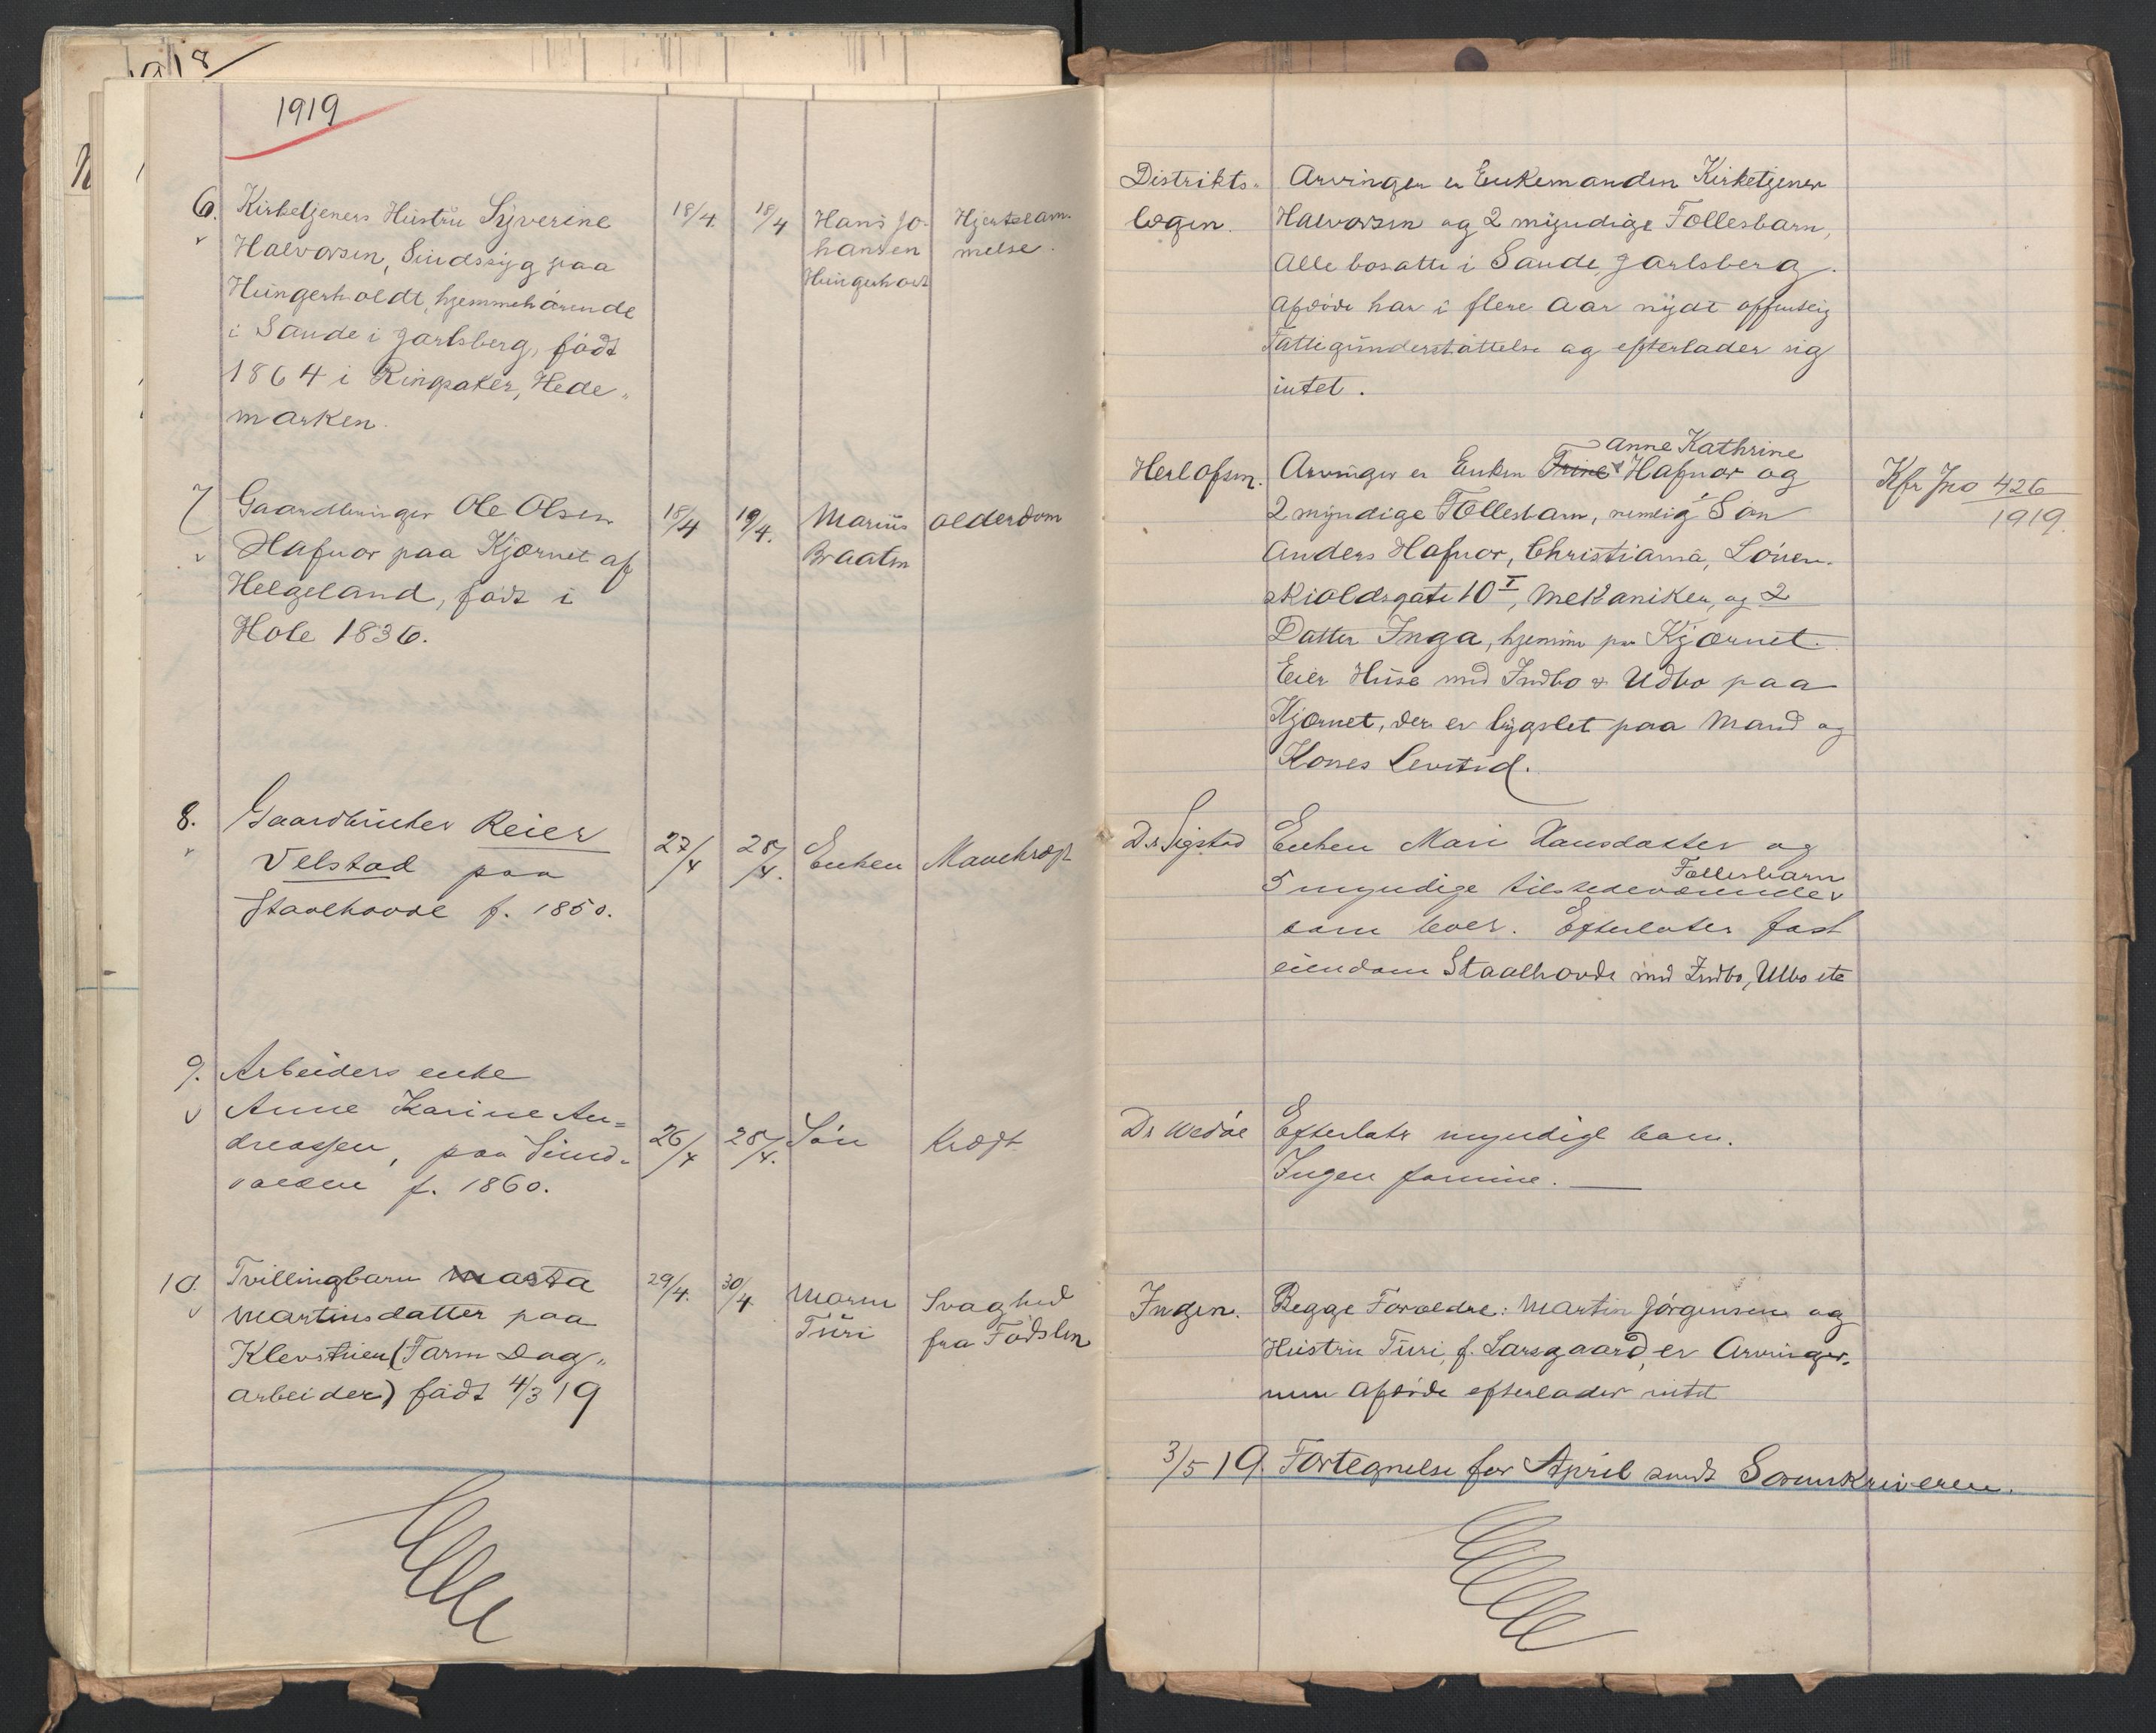 18
1919
6. Kirketjeners Hustru Syverine
Halvorsen, Sindssyg paa
Hungerholdt, hjemmehørende
i Sande i Jarlsberg, født
1864 i Ringsaker, Hede„
marken.
18/4. 18/4
Hans Jo-
hansen
Hungerholt
Hjertelam-
melse.
Distrikts„
lægen.
Arvinger er Enkemanden Kirketjener
Halvorsen og 2 myndige Fællesbarn,
Alle bosatte i Sande, Jarlsberg.
Afdøde har i flere Aar nydt offentlig
Fattigunderstøttelse og efterlader sig
intet.
7 Gaardbruger Ole Olsen
Hafnor paa Kjørnet af
Helgeland, født i
Hole 1836.
18/4 19/4.
Marius
Braaten
Alderdom
Herlofsen.
Anne Kathrine
Arvinger er Enken Trine Hafnor og
2 myndige Fællesbarn, nemlig 1 Søn
Anders Hafnor, Christiania, Løven-
skioldsgate 10 I, Mekaniker, og 2
Datter Inga, hjemme paa Kjærnet.
Eier Huse med Indbo & Udbo paa
Kjærnet, der er bygslet paa Mand og
Kones Levetid.
Kfr Jno 426
1919.
8. Gaardbruker Reier
Velstad paa
Staalhovde f. 1850.
27/4 28/4.
Enken
Mavekræft
Dr. Sigstad
Enken Mari Hansdatter og
Fællesbarn
5 myndige tilstedeværende
som lever. Efterlater fast
eiendom Staalhovde med Indbo, Utbo etc
9. Arbeiders enke
Anne Karine An=
dreassen, paa Sund„
volden f. 1860.
26/4 28/4.
Søn
Kræft
Dr Wedøe
Efterlater myndige barn.
Ingen formue.
10. Tvillingbarn Marta
Martinsdatter paa
Klevstuen (Farm Dag„
arbeider) født 4/3 19
29/4. 30/4
Moren
Turi
Svaghed
fra Fødslen
Ingen.
Begge Forældre: Martin Jørgensen og
Hustru Turi, f. Larsgaard, er Arvinger,
men Afdøde efterlader intet
3/5 19. Fortegnelse for April sendt Sorenskriveren.